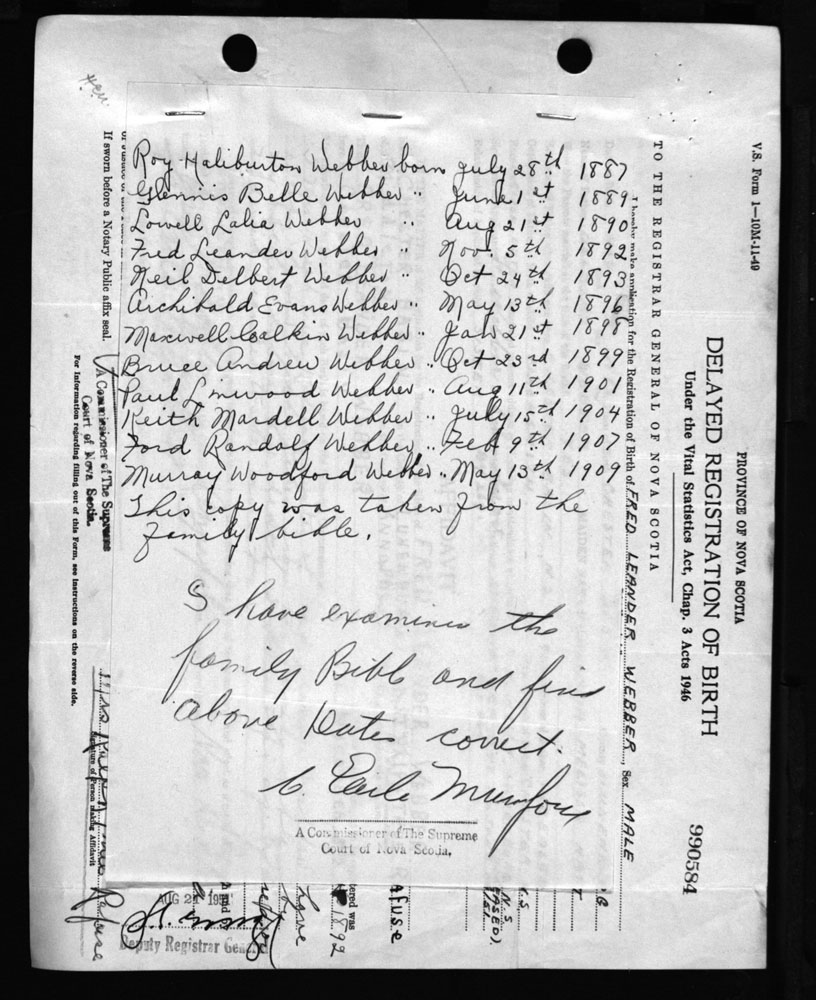 Roy Haliburton Webber born July 28th 1887
Glennis Belle Webber " June 1st 1889
Lowell Lalia Webber " Aug 21st 1890
Fred Leander Webber " Nov. 5th 1892
Neil Delbert Webber " Oct 24th 1893
Archibald Evans Webber " May 13th 1896
Maxwell Calkin Webber " Jan 21st 1898
Bruce Andrew Webber " Oct 23rd 1899
Paul Linwood Webber " Aug 11th 1901
Keith Mardell Webber " July 15th 1904
Ford Randolf Webber " Feb 9th 1907
Murray Woodford Webber " May 13th 1909
This copy was taken from the
family bible.
I have examined the
family Bible and find
above Dates correct.
C. Earle Mumford
A Commissioner of The Supreme
Court of Nova Scotia.
V.S. Form 1—10M-11-49
PROVINCE OF NOVA SCOTIA
DELAYED REGISTRATION OF BIRTH
990584
Under the Vital Statistics Act, Chap. 3 Acts 1946
TO THE REGISTRAR GENERAL OF NOVA SCOTIA
I hereby make application for the Registration of Birth of FRED LEANDER WEBBER, Sex MALE
N.S.
1892
AUG 21
Deputy Registrar General
Signature of Person Making Affidavit
A Commissioner of The Supreme
Court of Nova Scotia.
If sworn before a Notary Public affix seal.
For Information regarding filling out of this Form, see instructions on the reverse side.